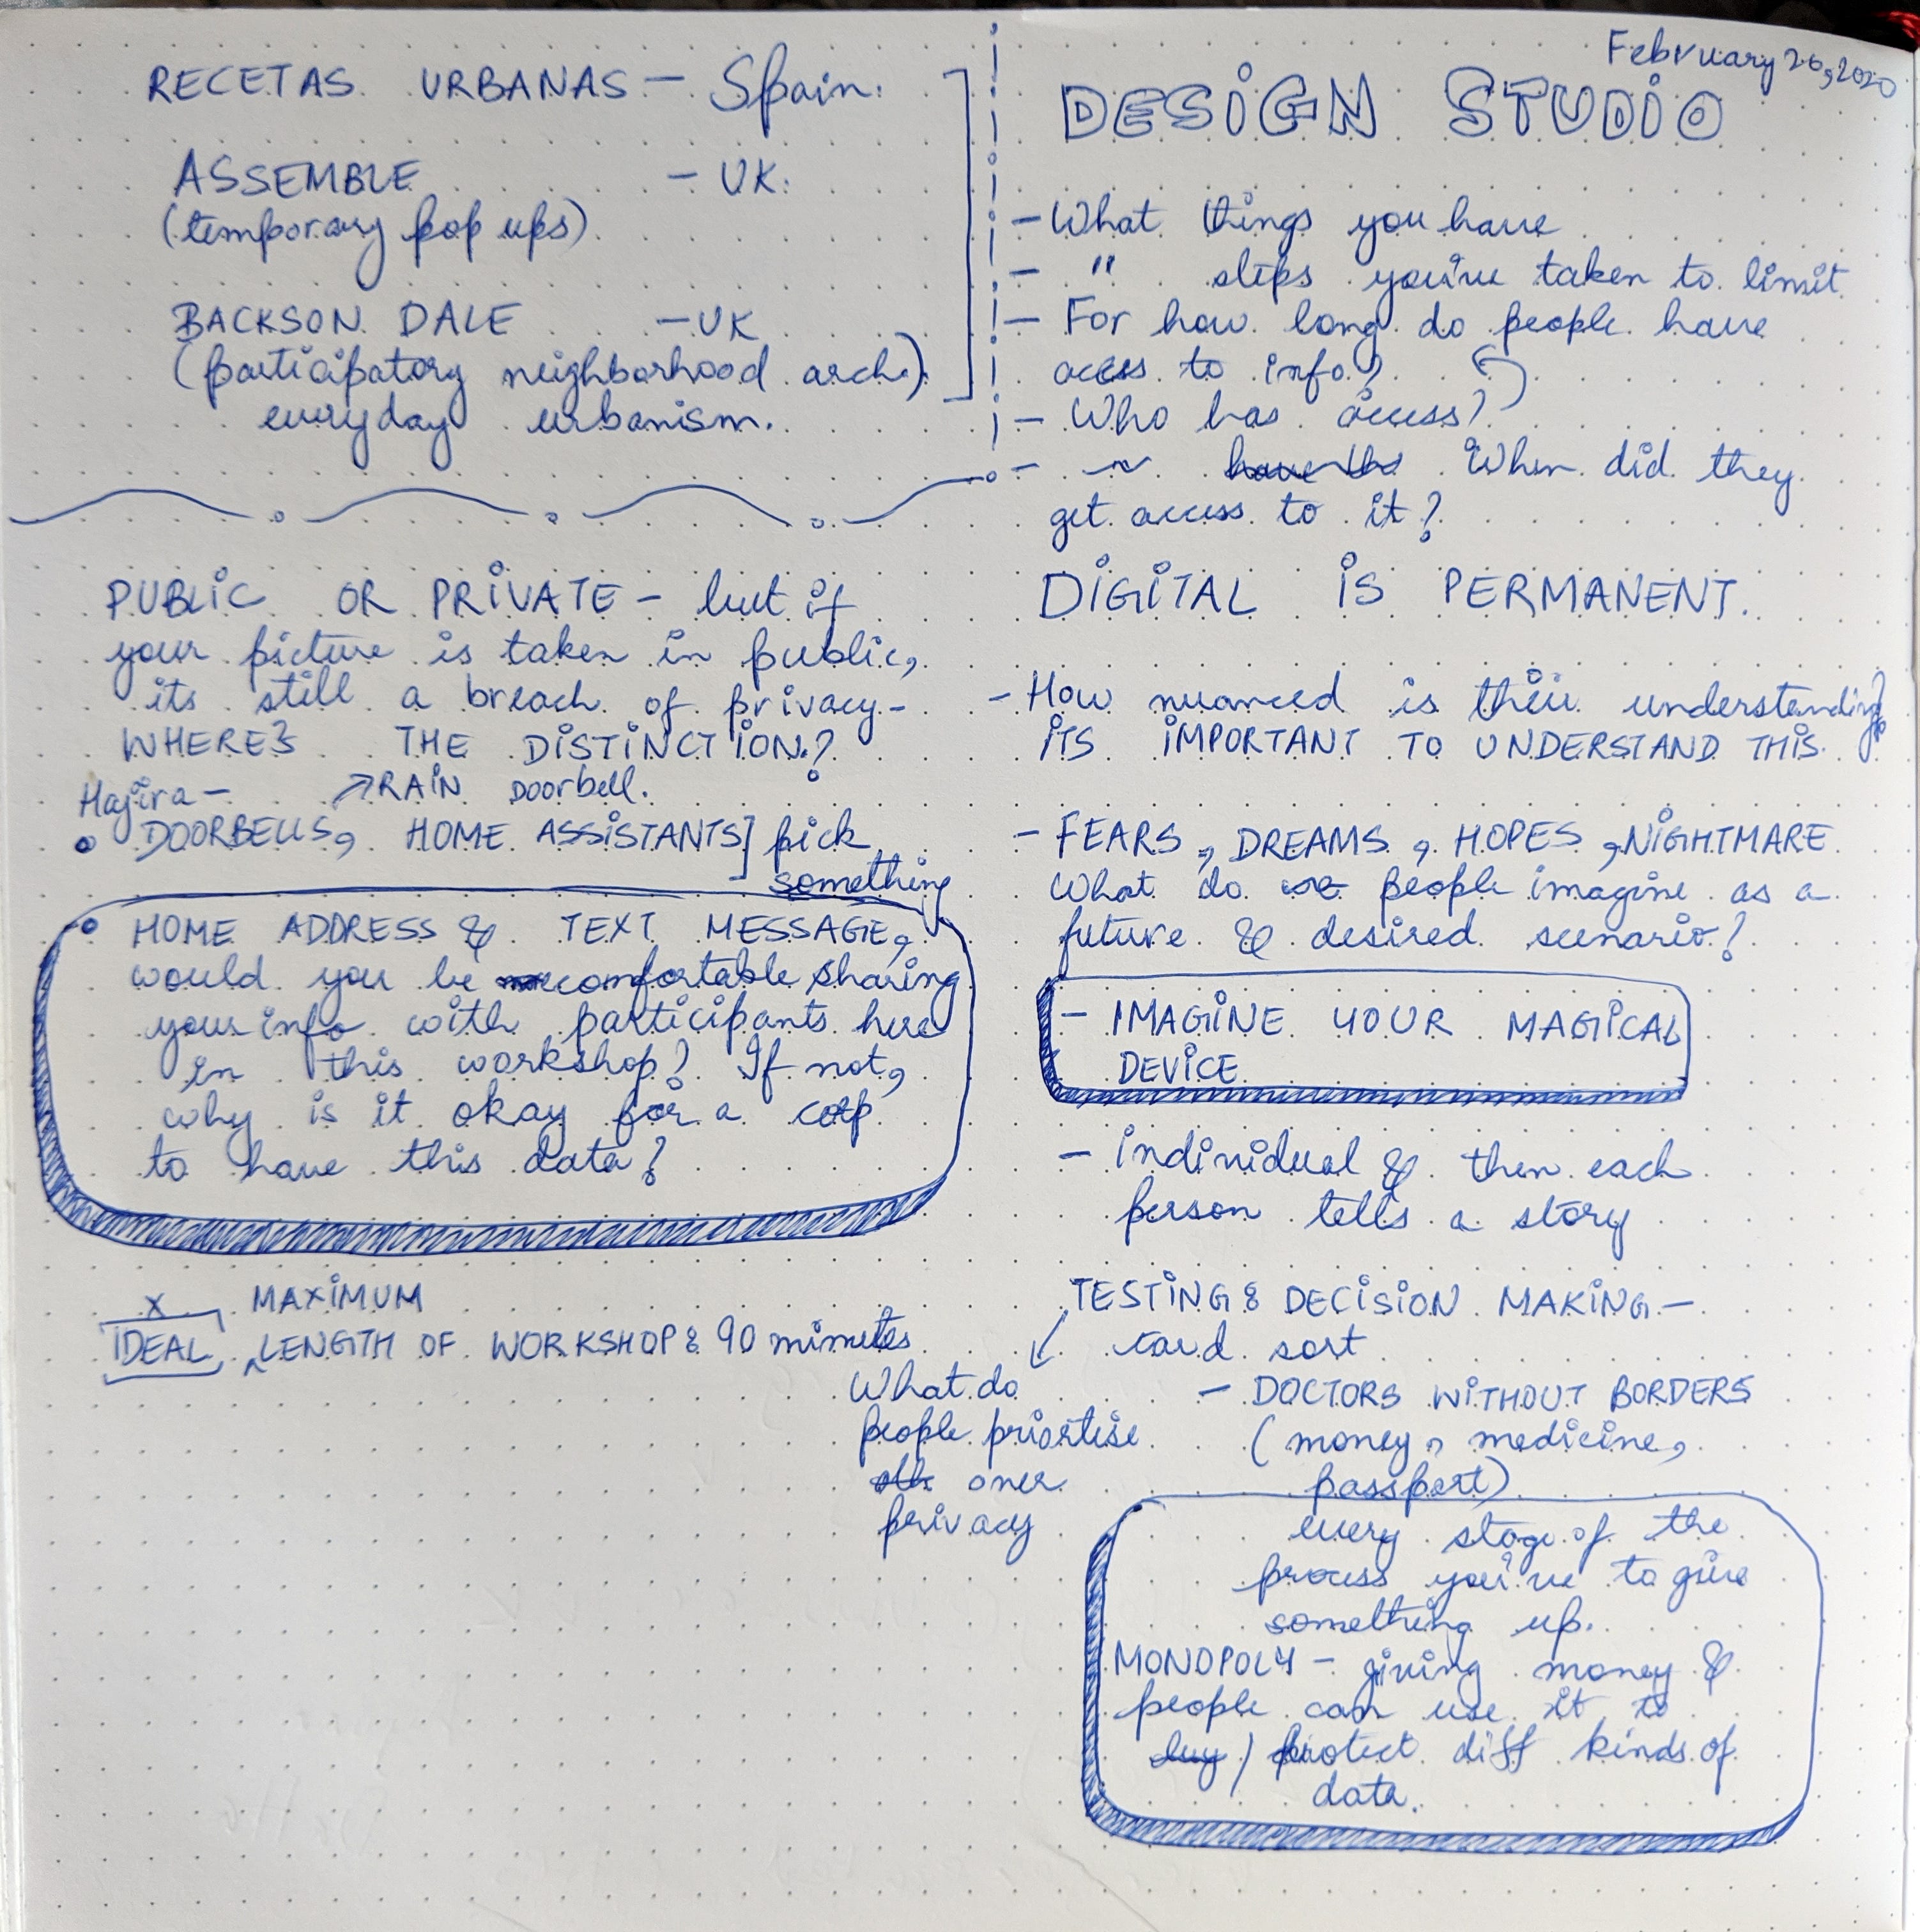 RECETAS URBANAS - Spain.
ASSEMBLE - UK.
(temporary pop ups)
BACKSON DALE - UK
(participatory neighborhood arch.)
everyday urbanism.
PUBLIC OR PRIVATE - but if
your picture is taken in public,
its still a breach of privacy-
WHERE'S THE DISTINCTION?
Hajira - ↗RAIN Doorbell.
• DOORBELLS, HOME ASSISTANTS] pick
something
• HOME ADDRESS & TEXT MESSAGE,
would you be comfortable sharing
your info with participants here
in this workshop? If not,
why is it okay for a corp
to have this data?
x MAXIMUM
IDEAL LENGTH OF WORKSHOP: 90 minutes
February 26, 2020
DESIGN STUDIO
- What things you have
- " steps you've taken to limit
- For how long do people have
access to info?
- Who has access?
- ~ When did they
get access to it?
DIGITAL IS PERMANENT.
- How nuanced is their understanding?
ITS IMPORTANT TO UNDERSTAND THIS.
- FEARS, DREAMS, HOPES, NIGHTMARE
What do people imagine as a
future & desired scenario?
- IMAGINE YOUR MAGICAL
DEVICE
- individual & then each
person tells a story
TESTING: DECISION MAKING -
card sort
What do
people prioritise
over
privacy
- DOCTORS WITHOUT BORDERS
(money, medicine,
passport)
every stage of the
process you've to give
something up.
MONOPOLY - giving money &
people can use it to
buy / protect diff kinds of
data.